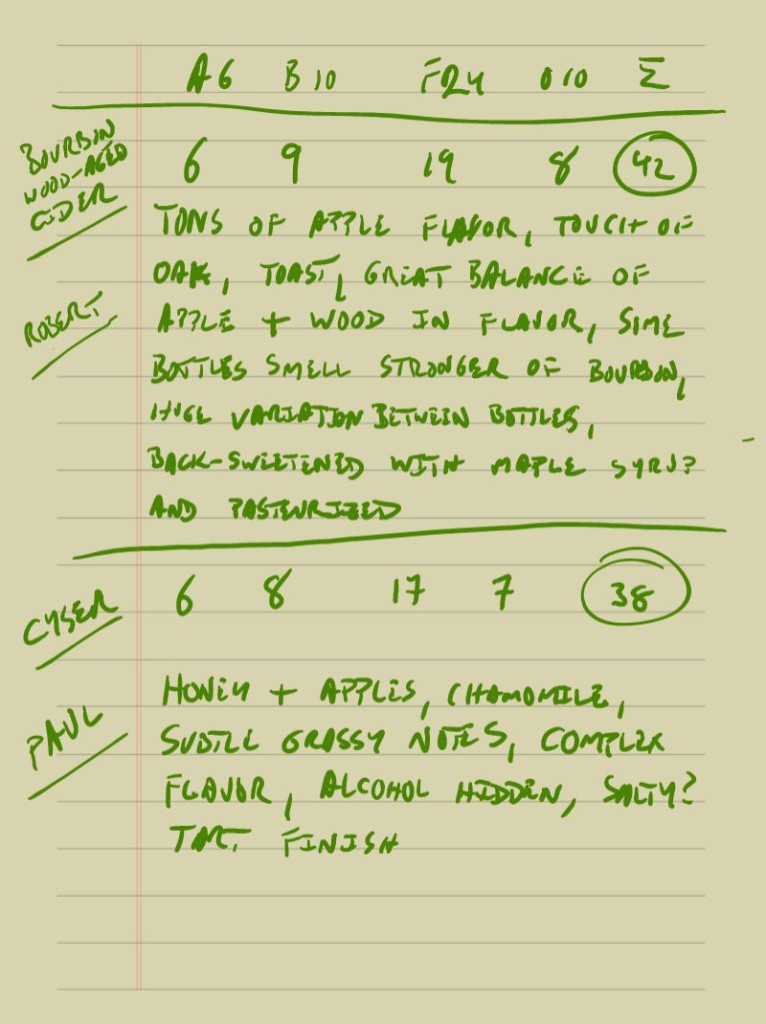 A6 B10 FR24 O10 Σ
BOURBON
WOOD-AGED
CIDER
6 9 19 8 42
TONS OF APPLE FLAVOR, TOUCH OF
OAK, TOAST, GREAT BALANCE OF
ROBERT
APPLE + WOOD IN FLAVOR, SIME
BOTTLES SMELL STRONGER OF BOURBON,
HUGE VARIATION BETWEEN BOTTLES,
BACK-SWEETENED WITH MAPLE SYRU?
AND PASTEURIZED
CYSER
6 8 17 7 38
HONEY + APPLES, CHAMOMILE,
PAUL
SUBTLE GRASSY NOTES, COMPLEX
FLAVOR, ALCOHOL HIDDEN, SALTY?
TART FINISH